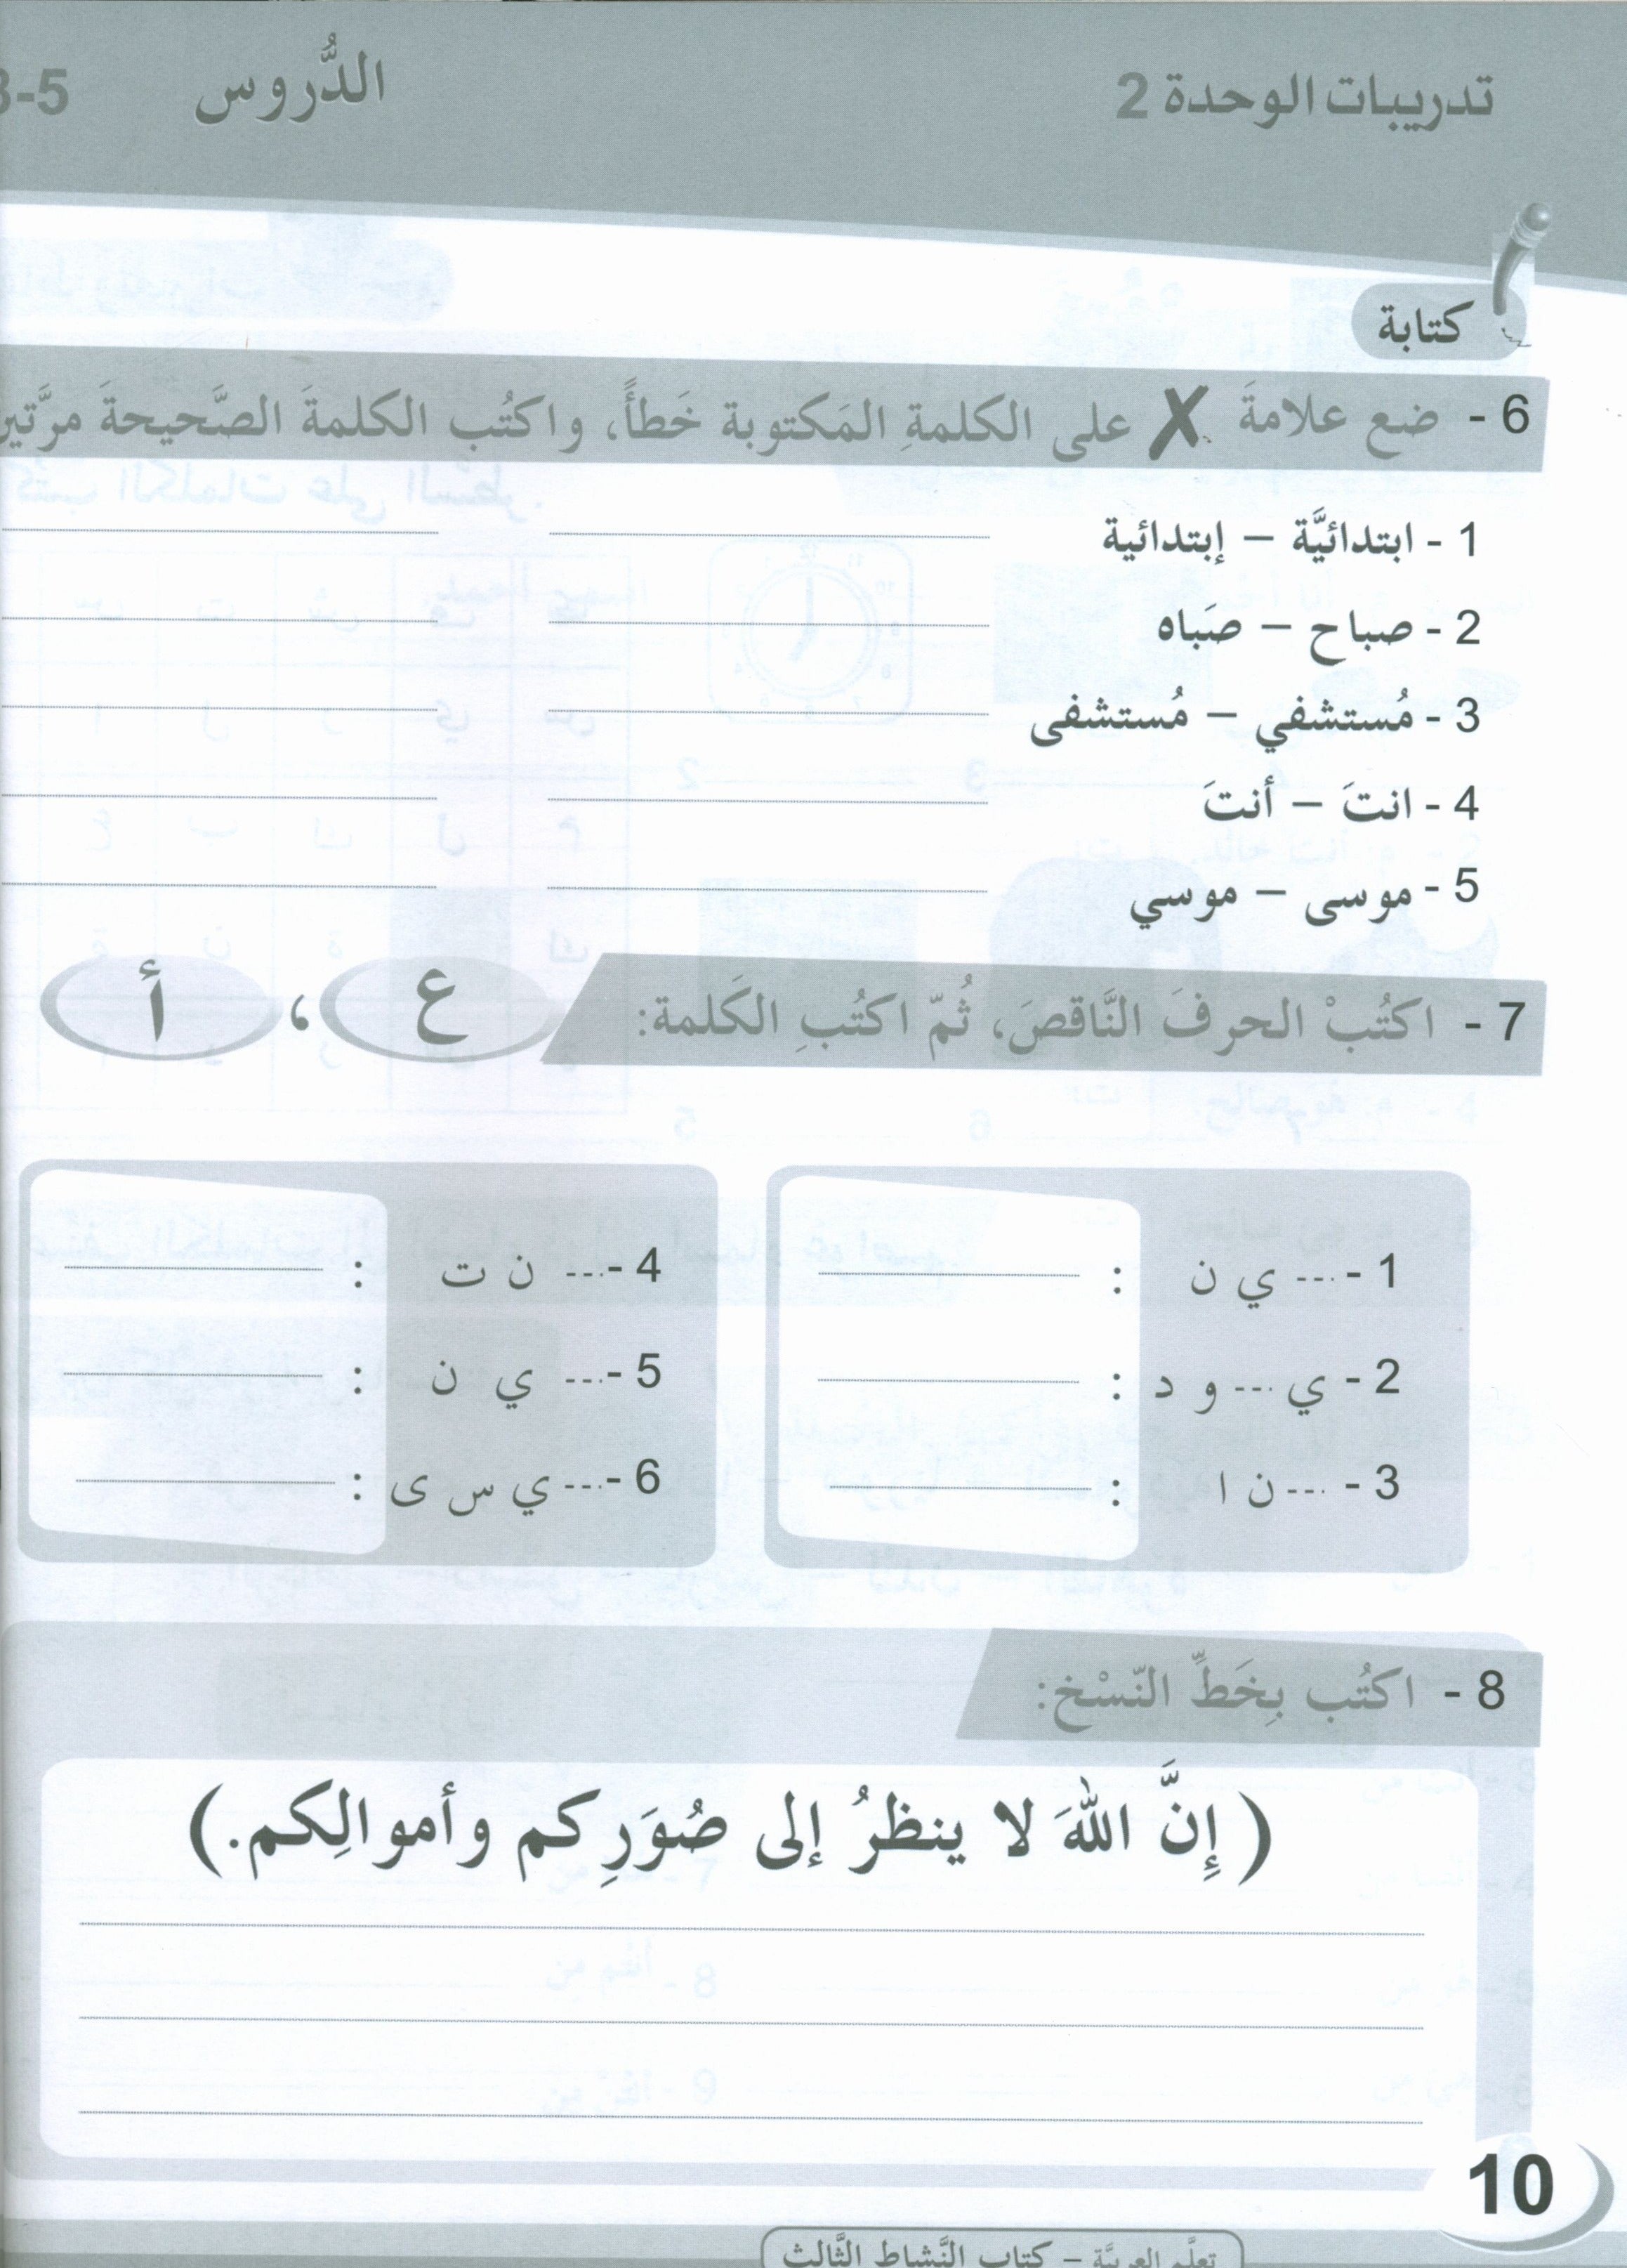 تدريبات الوحدة 2 الدُّروس 3-5
كتابة
6 - ضع علامةَ ✗ على الكلمةِ المَكتوبة خَطأً، واكتُب الكلمةَ الصَّحيحةَ مرَّتين
1 - ابتدائيَّة – إبتدائية
2 - صباح – صَباه
3 - مُستشفي – مُستشفى
4 - انتَ – أنتَ
5 - موسى – موسي
7 - اكتُبْ الحرفَ النَّاقصَ، ثُمّ اكتُبِ الكَلمة: ع ، أ
1 - ... ي ن :
2 - ي ... و د :
3 - ... ن ا :
4 - ... ن ت :
5 - ... ي ن :
6 - ... ي س ى :
8 - اكتُب بِخَطِّ النّسْخ:
( إِنَّ اللهَ لا ينظرُ إلى صُوَرِكم وأموالِكم.)
10
تعلَّم العربيَّة – كتاب النَّشاط الثَّالث